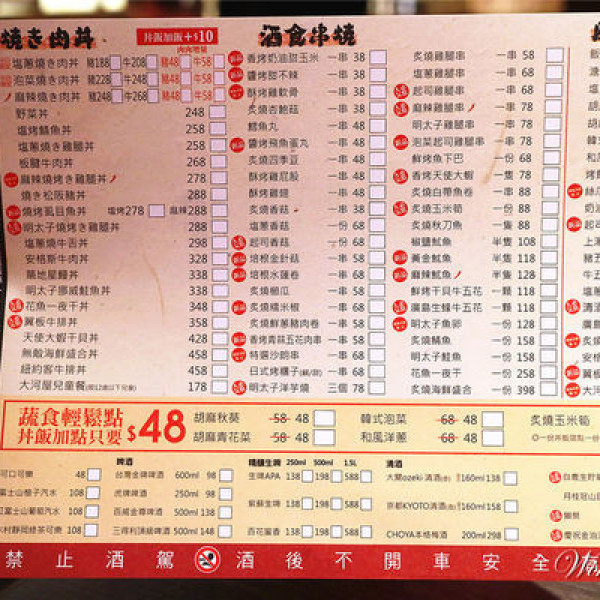 燒き肉丼 丼飯加飯+$10
肉肉增量
塩蔥燒き肉丼 豬188 牛208 豬48 牛58
泡菜燒き肉丼 豬228 牛248 豬48 牛58
麻辣燒き肉丼 豬228 牛248 豬48 牛58
野菜丼 248
塩烤鯖魚丼 258
塩蔥燒き雞腿丼 258
板腱牛肉丼 268
麻辣燒烤き雞腿丼 278
燒き松阪豬丼 288
燒烤虱目魚丼 塩烤278 麻辣288
明太子燒烤き雞腿丼 288
塩蔥燒牛舌丼 298
安格斯牛肉丼 328
築地星鰻丼 338
明太子挪威鮭魚丼 338
花魚一夜干丼 348
翼板牛排丼 358
天使大蝦干貝丼 428
無敵海鮮盛合丼 458
紐約客牛排丼 458
大河屋兒童餐(限12歲以下兒童) 178
酒食串燒
香烤奶油甜玉米 一串 38
鹽烤甜不辣 一串 38
酥烤雞軟骨 一串 38
炙燒杏鮑菇 一串 38
鱈魚丸 一串 48
鹽烤飛魚蛋丸 一串 48
炙燒四季豆 一串 48
酥烤雞屁股 一串 48
酥烤雞翅 一串 48
炙燒香菇 一串 38
起司香菇 一串 68
培根金針菇 一串 58
培根水蓮卷 一串 68
炙燒櫛瓜 一串 58
炙燒糯米椒 一串 68
炙燒鮮蔥豬肉卷 一串 58
香烤青蒜五花肉串 一串 58
特選沙朗串 一串 68
日式烤糰子 一串 68
明太子洋芋燒 三個 78
炙燒雞腿串 一串 58
塩蔥雞腿串 一串 68
起司雞腿串 一串 78
麻辣雞腿串 一串 78
明太子雞腿串 一串 78
泡菜起司雞腿串 一串 88
鮮烤魚下巴 一份 68
香烤天使大蝦 一隻 78
炙燒白帶魚卷 一串 88
炙燒玉米筍 一份 88
炙燒秋刀魚 一隻 88
椒鹽魷魚 半隻 108
黃金魷魚 半隻 118
麻辣魷魚 半隻 128
鮮烤干貝牛五花 一顆 118
廣島生蠔牛五花 一顆 118
明太子魚卵 一份 128
炙燒鯖魚 一份 158
明太子鮭魚 一份 158
花魚一夜干 一份 258
炙燒海鮮盛合 一份 398
蔬食輕鬆點
丼飯加點只要 $48
胡麻秋葵 58 48 韓式泡菜 68 48 炙燒玉米筍
胡麻青花菜 58 48 和風洋蔥 68 48
可口可樂 48
富士山柚子汽水 108
富士山葡萄汽水 108
木村靜岡綠茶可樂 108
啤酒
台灣金牌啤酒 600ml 98
虎牌啤酒 250ml 98
百威金尊啤酒 500ml 138
三得利頂級啤酒 500ml 148
精釀生啤 250ml 500ml 1.5L
生啤APA 138 198 588
紫蘇生啤 138 198 588
百花蜜香 138 198 588
清酒
大關ozeki 清酒(冷) 160ml 138
京都KYOTO清酒(冷) 160ml 158
CHOYA本格梅酒 200ml 298
禁止酒駕 酒後不開車安全